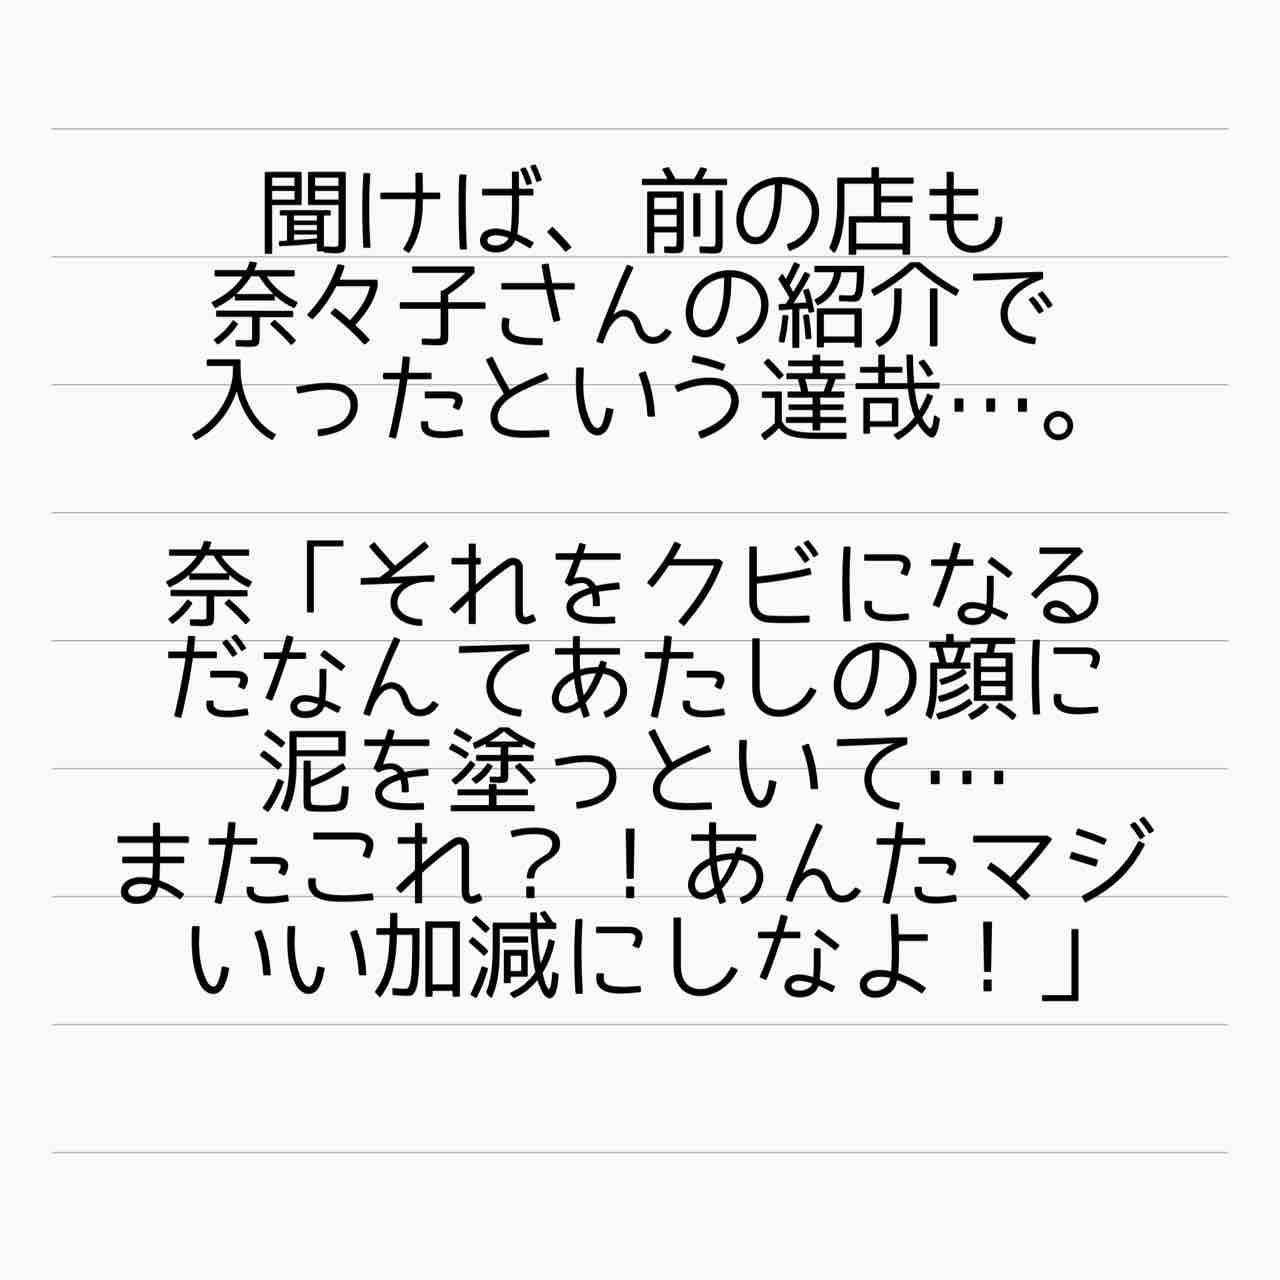 聞けば、前の店も
奈々子さんの紹介で
入ったという達哉…。
奈「それをクビになる
だなんてあたしの顔に
泥を塗っといて…
またこれ？！あんたマジ
いい加減にしなよ！」